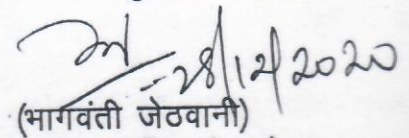 28/12/2020
(भागवंती जेठवानी)